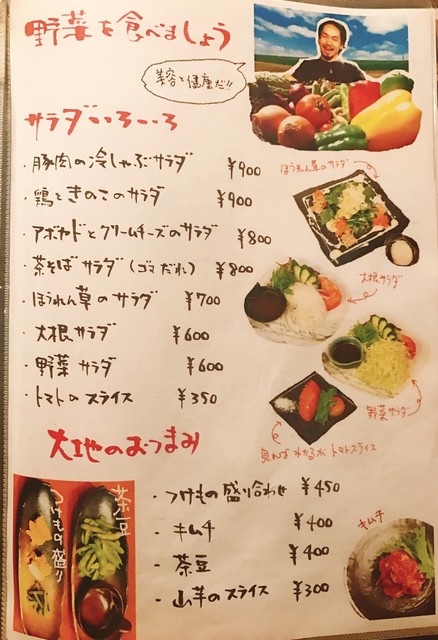 野菜を食べましょう
美容と健康だ!!
サラダいろいろ
・豚肉の冷しゃぶサラダ ¥900
・鶏ときのこのサラダ ¥900
・アボカドとクリームチーズのサラダ ¥800
・茶そばサラダ(ゴマだれ) ¥800
・ほうれん草のサラダ ¥700
・大根サラダ ¥600
・野菜サラダ ¥600
・トマトのスライス ¥350
ほうれん草のサラダ
大根サラダ
野菜サラダ
見ればわかるがトマトスライス
大地のおつまみ
・つけもの盛り合わせ ¥450
・キムチ ¥400
・茶豆 ¥400
・山芋のスライス ¥300
つけもの盛り
茶豆
キムチ